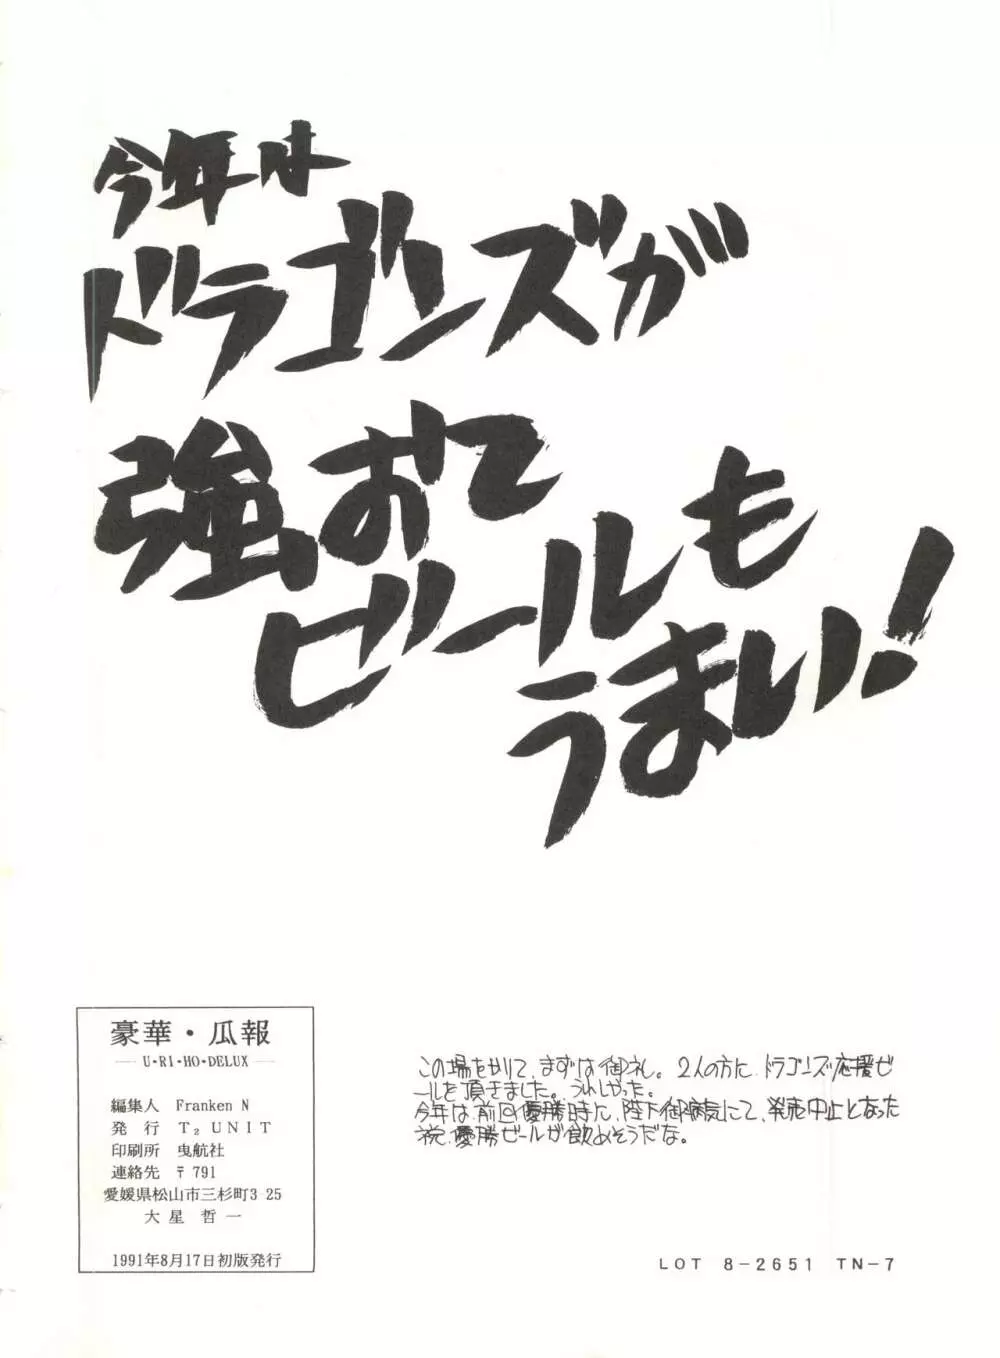 今年は
ドラゴンズが
強おて
ビールも
うまい!
豪華・瓜報
U・RI・HO・DELUX
編集人 Franken N
発 行 T₂ UNIT
印刷所 曳航社
連絡先 〒791
愛媛県松山市三杉町3 25
大星 哲一
1991年8月17日初版発行
この場をかりて、まずは御礼。2人の方に、ドラゴンズ応援ビ
ールを頂きました。うれしかった。
今年は、前回優勝時に、陛下御病気にて、発売中止となった
祝、優勝ビールが飲めそうだな。
LOT 8-2651 TN-7